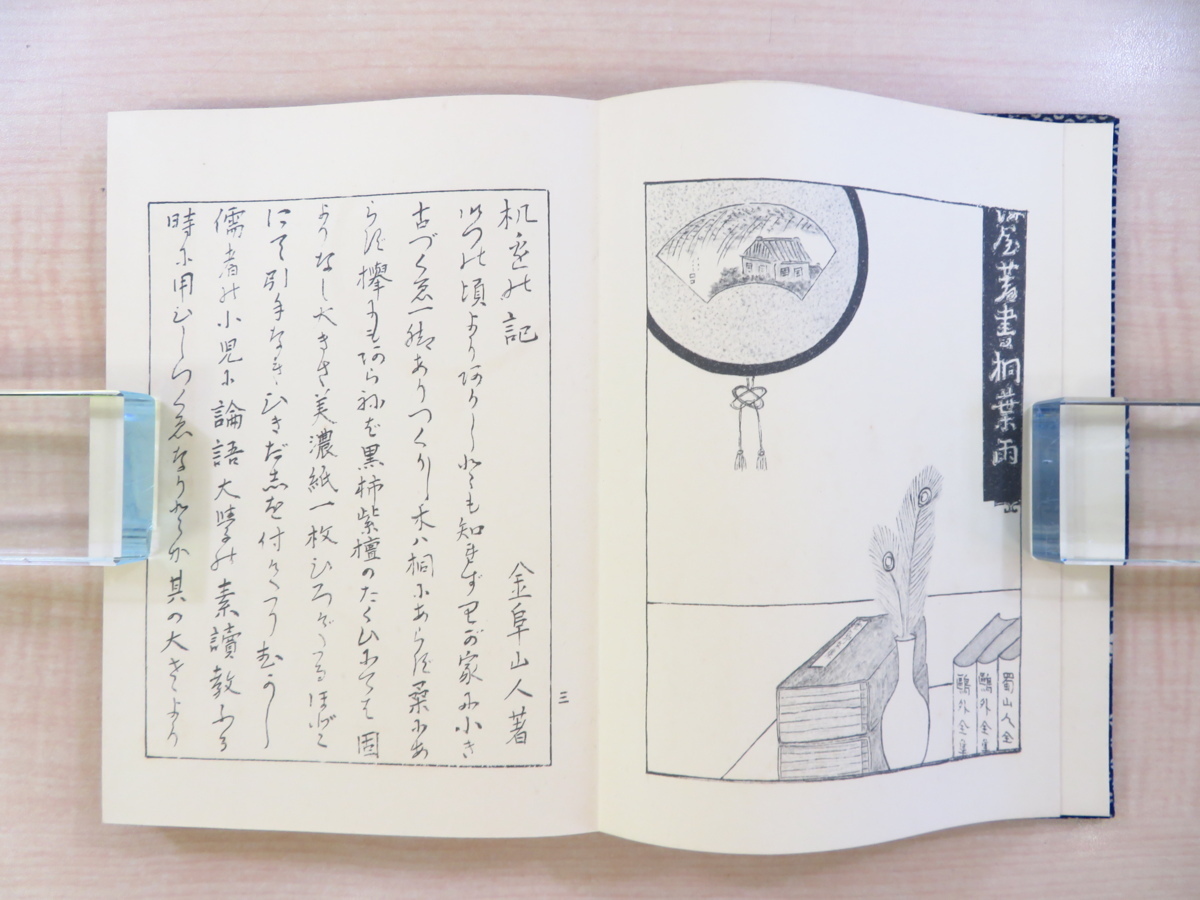 屋
書桐葉雨
蜀山人全
鷗外全集
鷗外全集
机辺の記
金阜山人著
三
いつの頃よりありしとも知れずわが家に小さき
古づくゑ一脚ありつくりし木ハ桐にあらず桑にあ
らず欅にもあらねば黒柿紫檀のたぐひにても固
よりなし大きさ美濃紙一枚ひろげうるほど
にて引手なきひきだしを付けたりむかし
儒者の小児に論語大學の素讀教ふる
時に用ひしつくゑなりとか其の大きさより